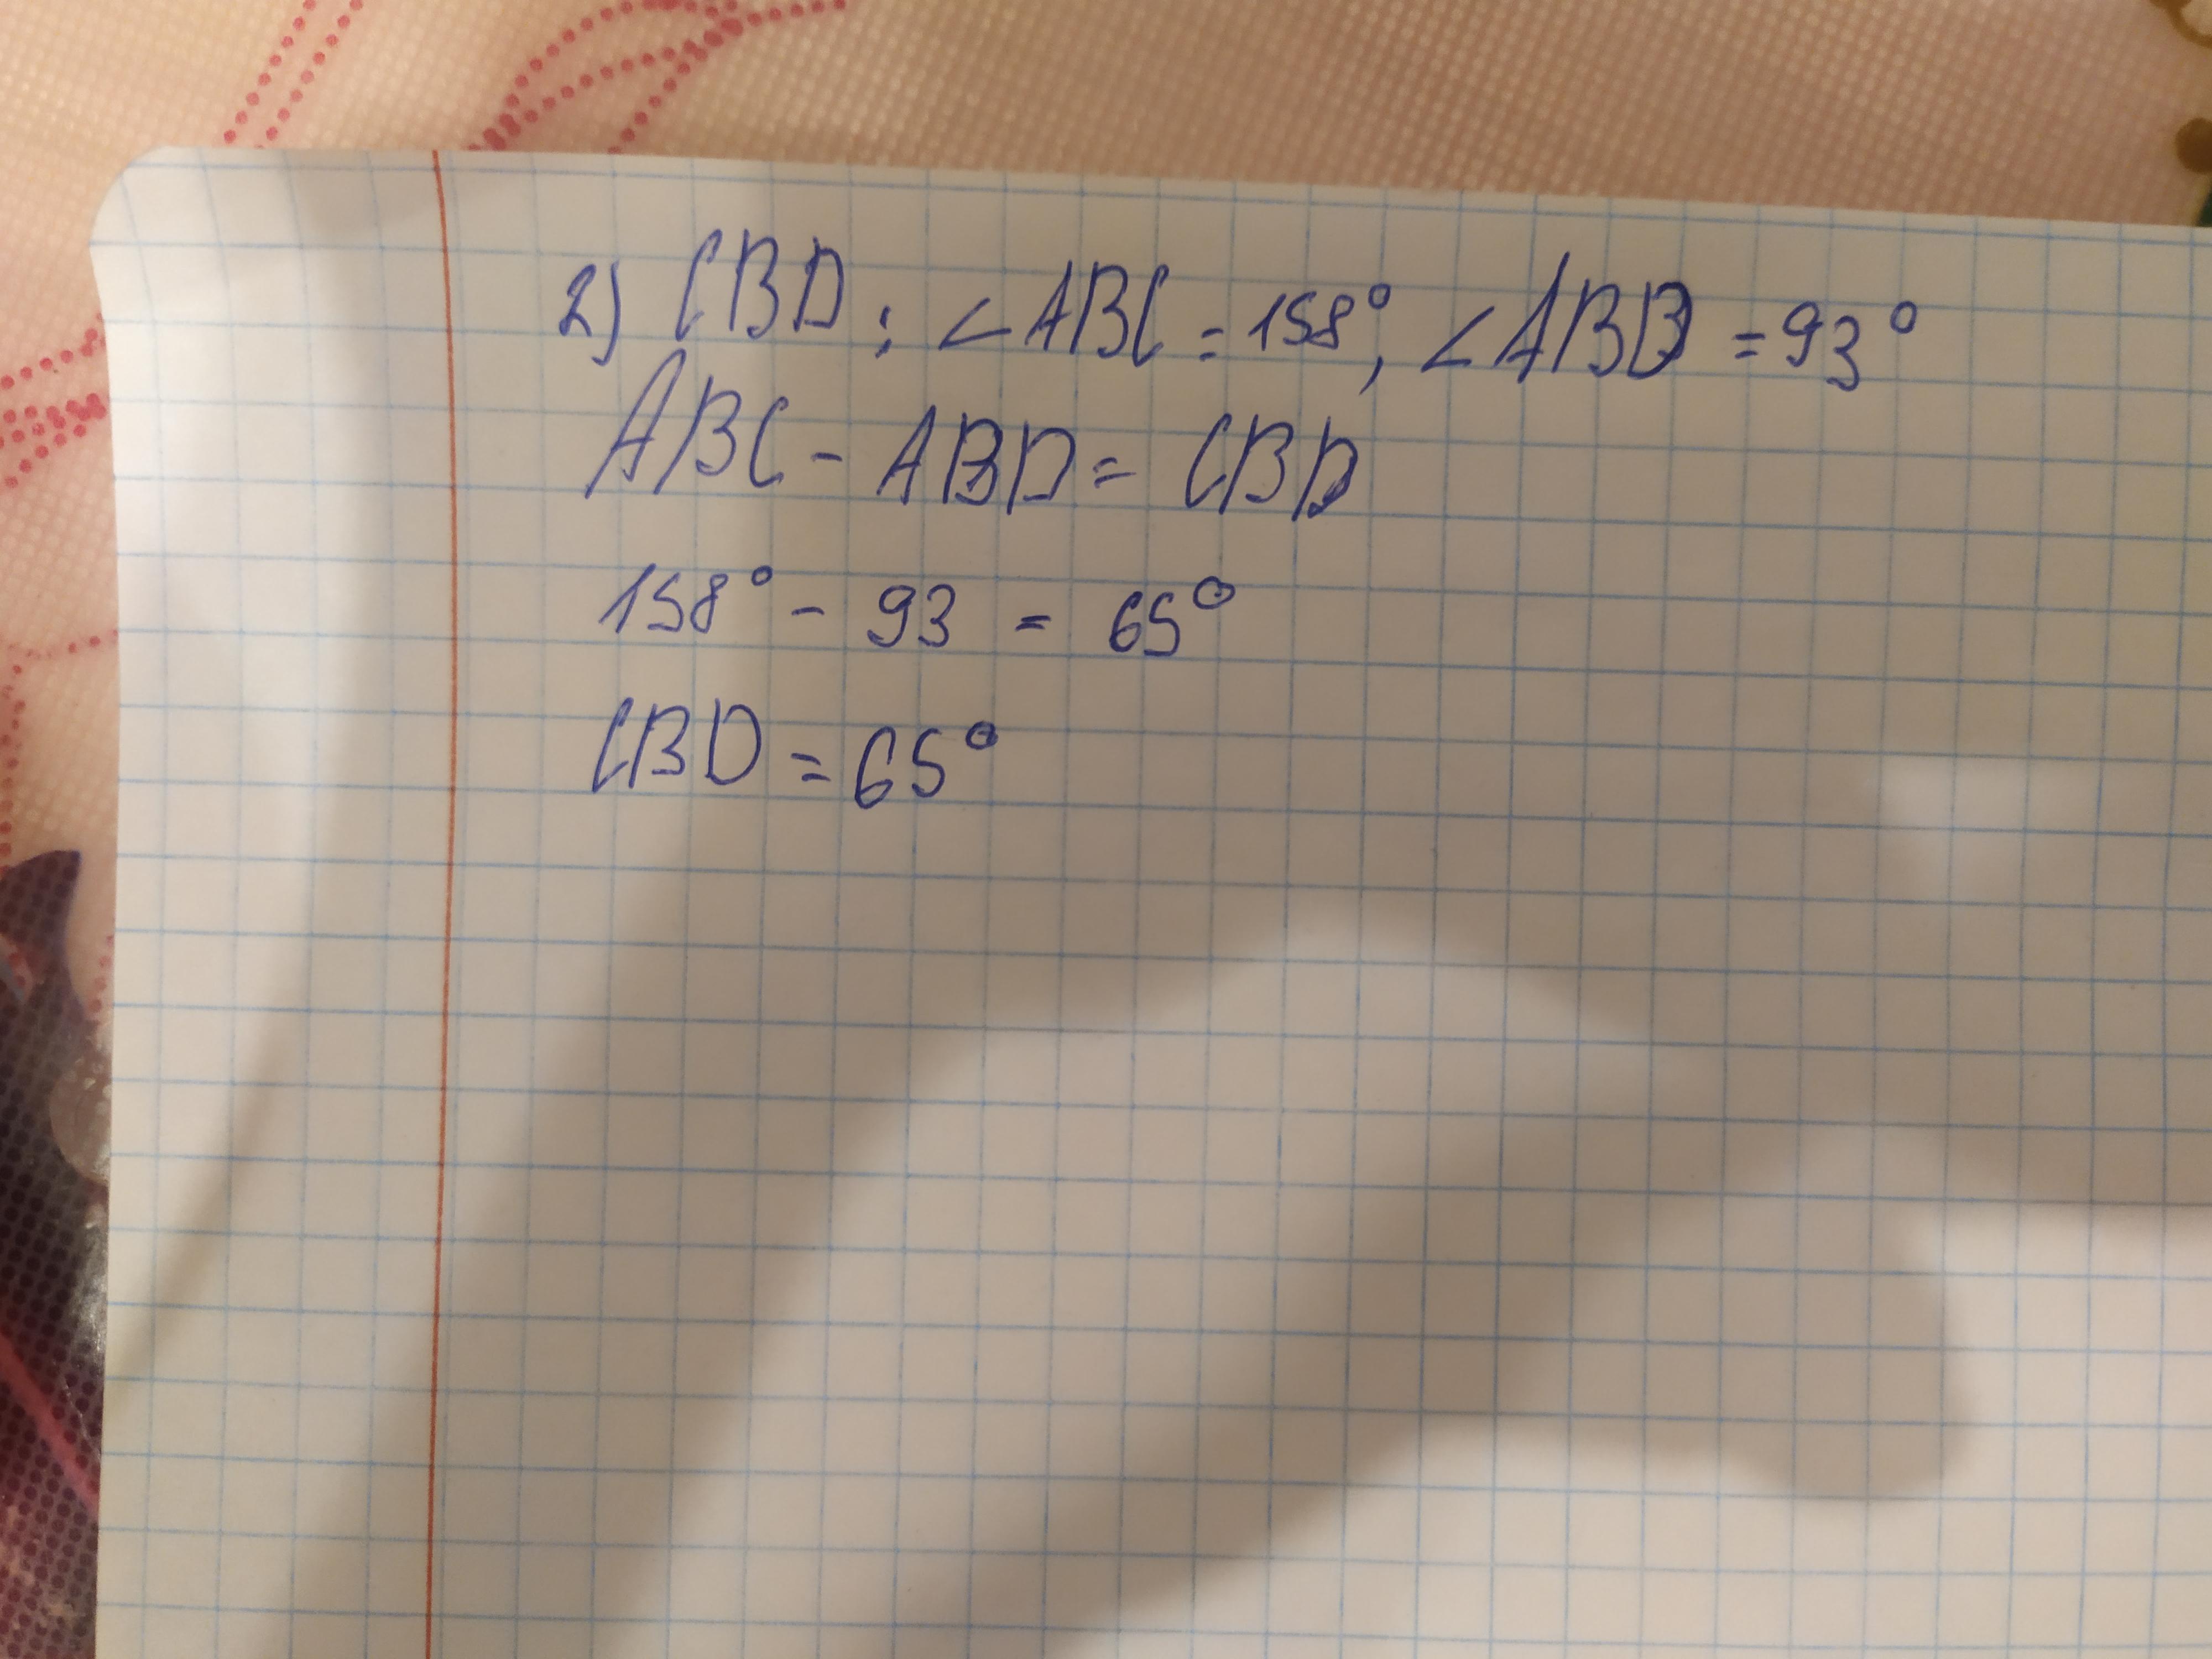 2) CBD; ∠ABC = 158°, ∠ABD = 93°
ABC - ABD = CBD
158° - 93 = 65°
CBD = 65°